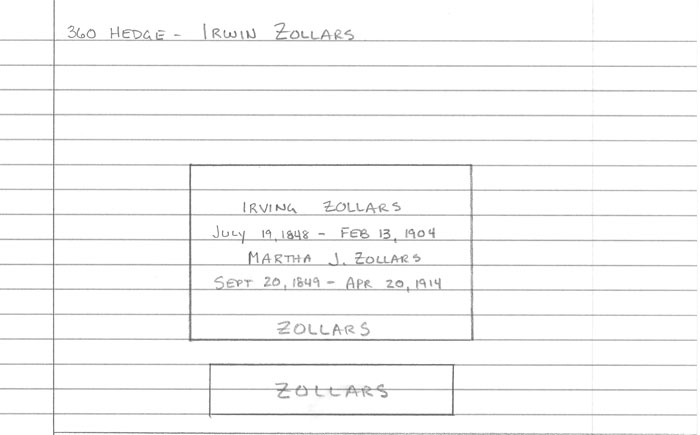 360 HEDGE - IRWIN ZOLLARS
IRVING ZOLLARS
JULY 19, 1848 - FEB 13, 1904
MARTHA J. ZOLLARS
SEPT 20, 1849 - APR 20, 1914
ZOLLARS
ZOLLARS